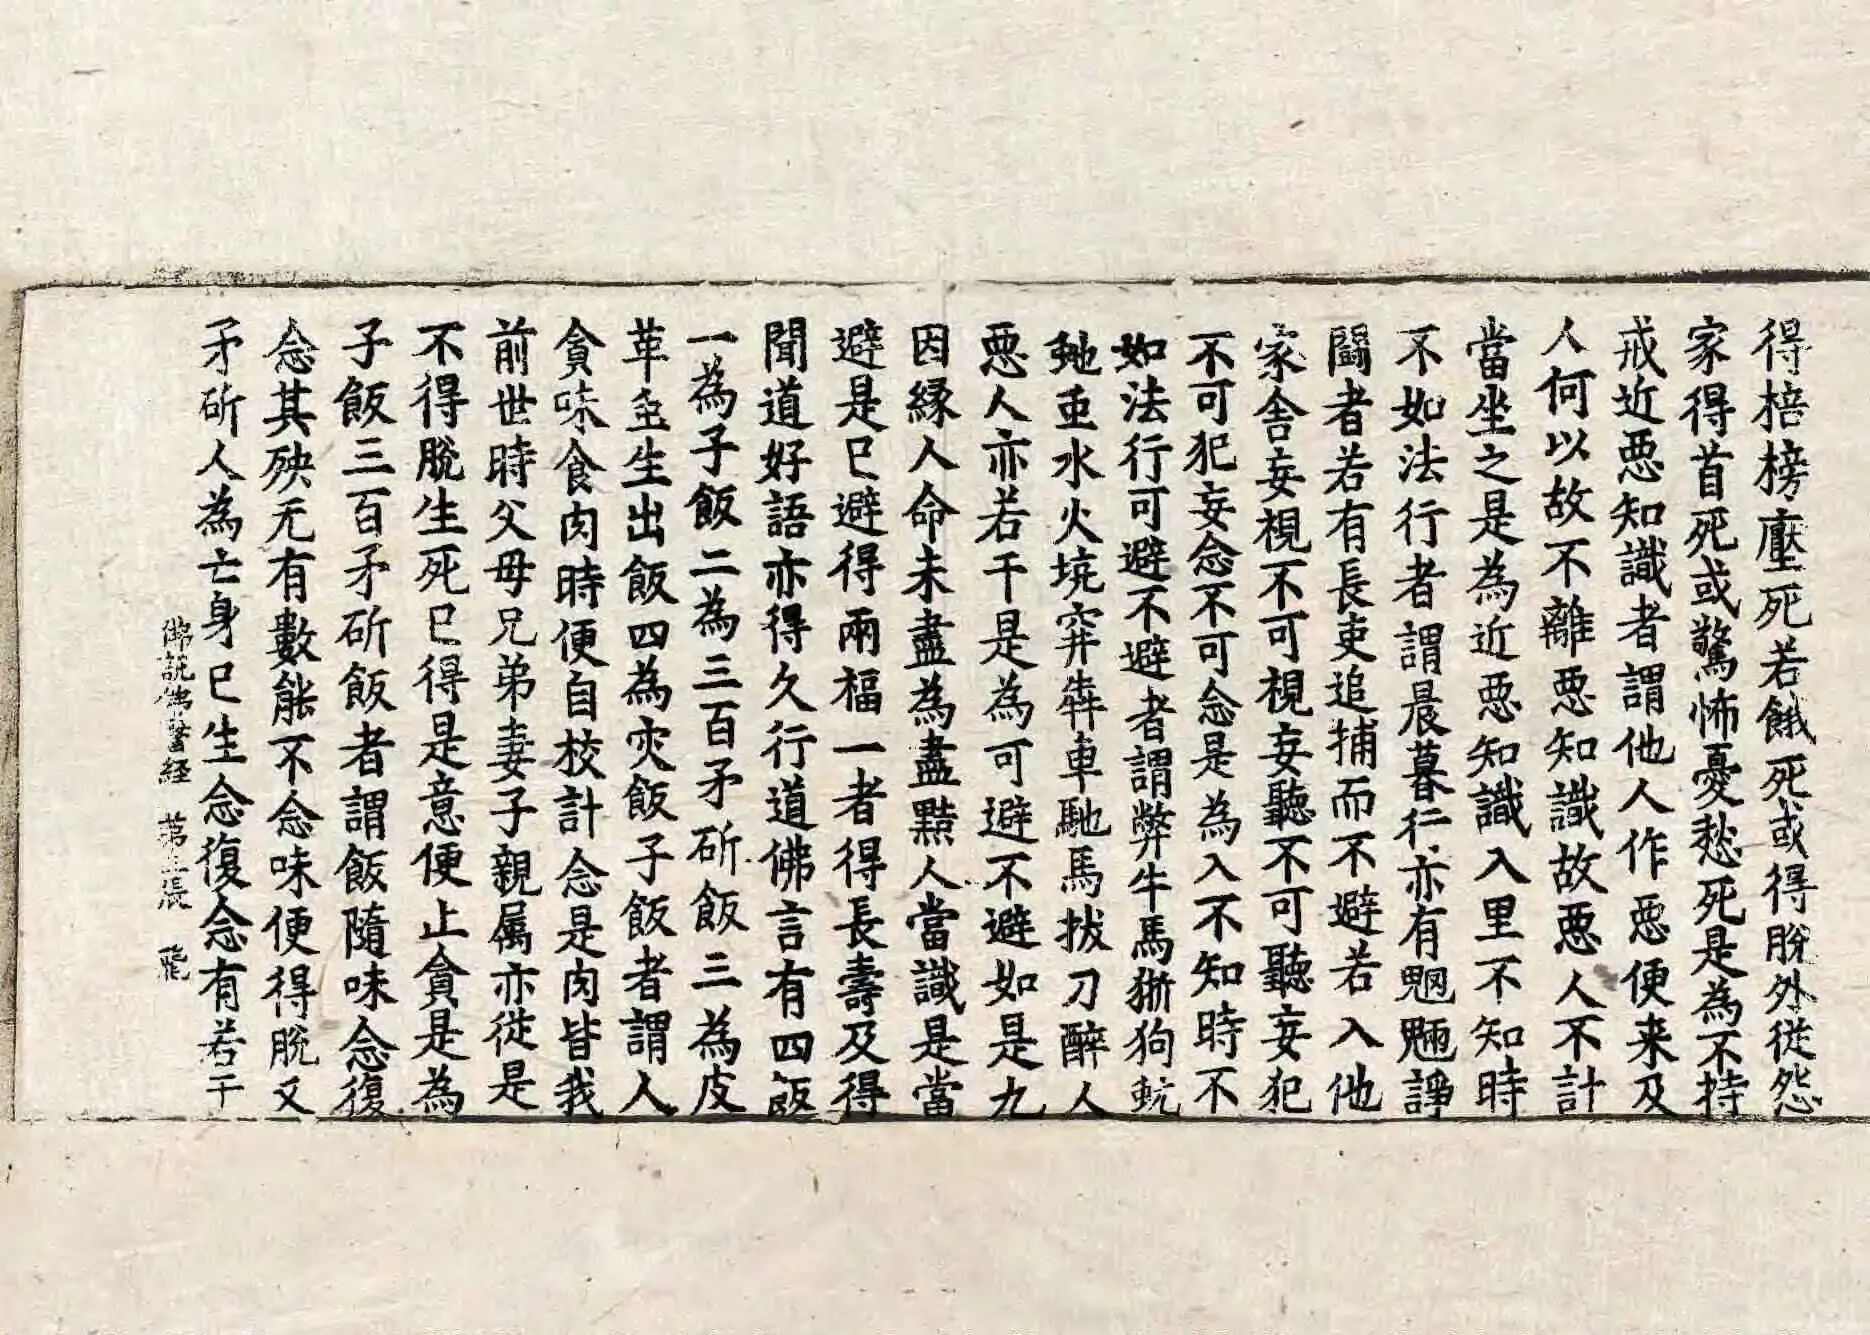 得棓榜壓死若餓死或得脫外從怨
家得首死或驚怖憂愁死是為不持
戒近惡知識者謂他人作惡便来及
人何以故不離惡知識故惡人不計
當坐之是為近惡知識入里不知時
不如法行者謂晨暮行亦有魍魎諍
鬪者若有長吏追捕而不避若入他
家舍妄視不可視妄聽不可聽妄犯
不可犯妄念不可念是為入不知時不
如法行可避不避者謂弊牛馬猘狗蚖
虵䖝水火坑穽犇車馳馬拔刀醉人
惡人亦若干是為可避不避如是九
因緣人命未盡為盡黠人當識是當
避是已避得兩福一者得長壽及得
聞道好語亦得久行道佛言有四飯
一為子飯二為三百矛斫飯三為皮
革䖝生出飯四為灾飯子飯者謂人
貪味食肉時便自校計念是肉皆我
前世時父母兄弟妻子親屬亦從是
不得脫生死已得是意便止貪是為
子飯三百矛斫飯者謂飯隨味念復
念其殃无有數能不念味便得脫又
矛斫人為亡身已生念復念有若干
佛說佛醫經 第三張